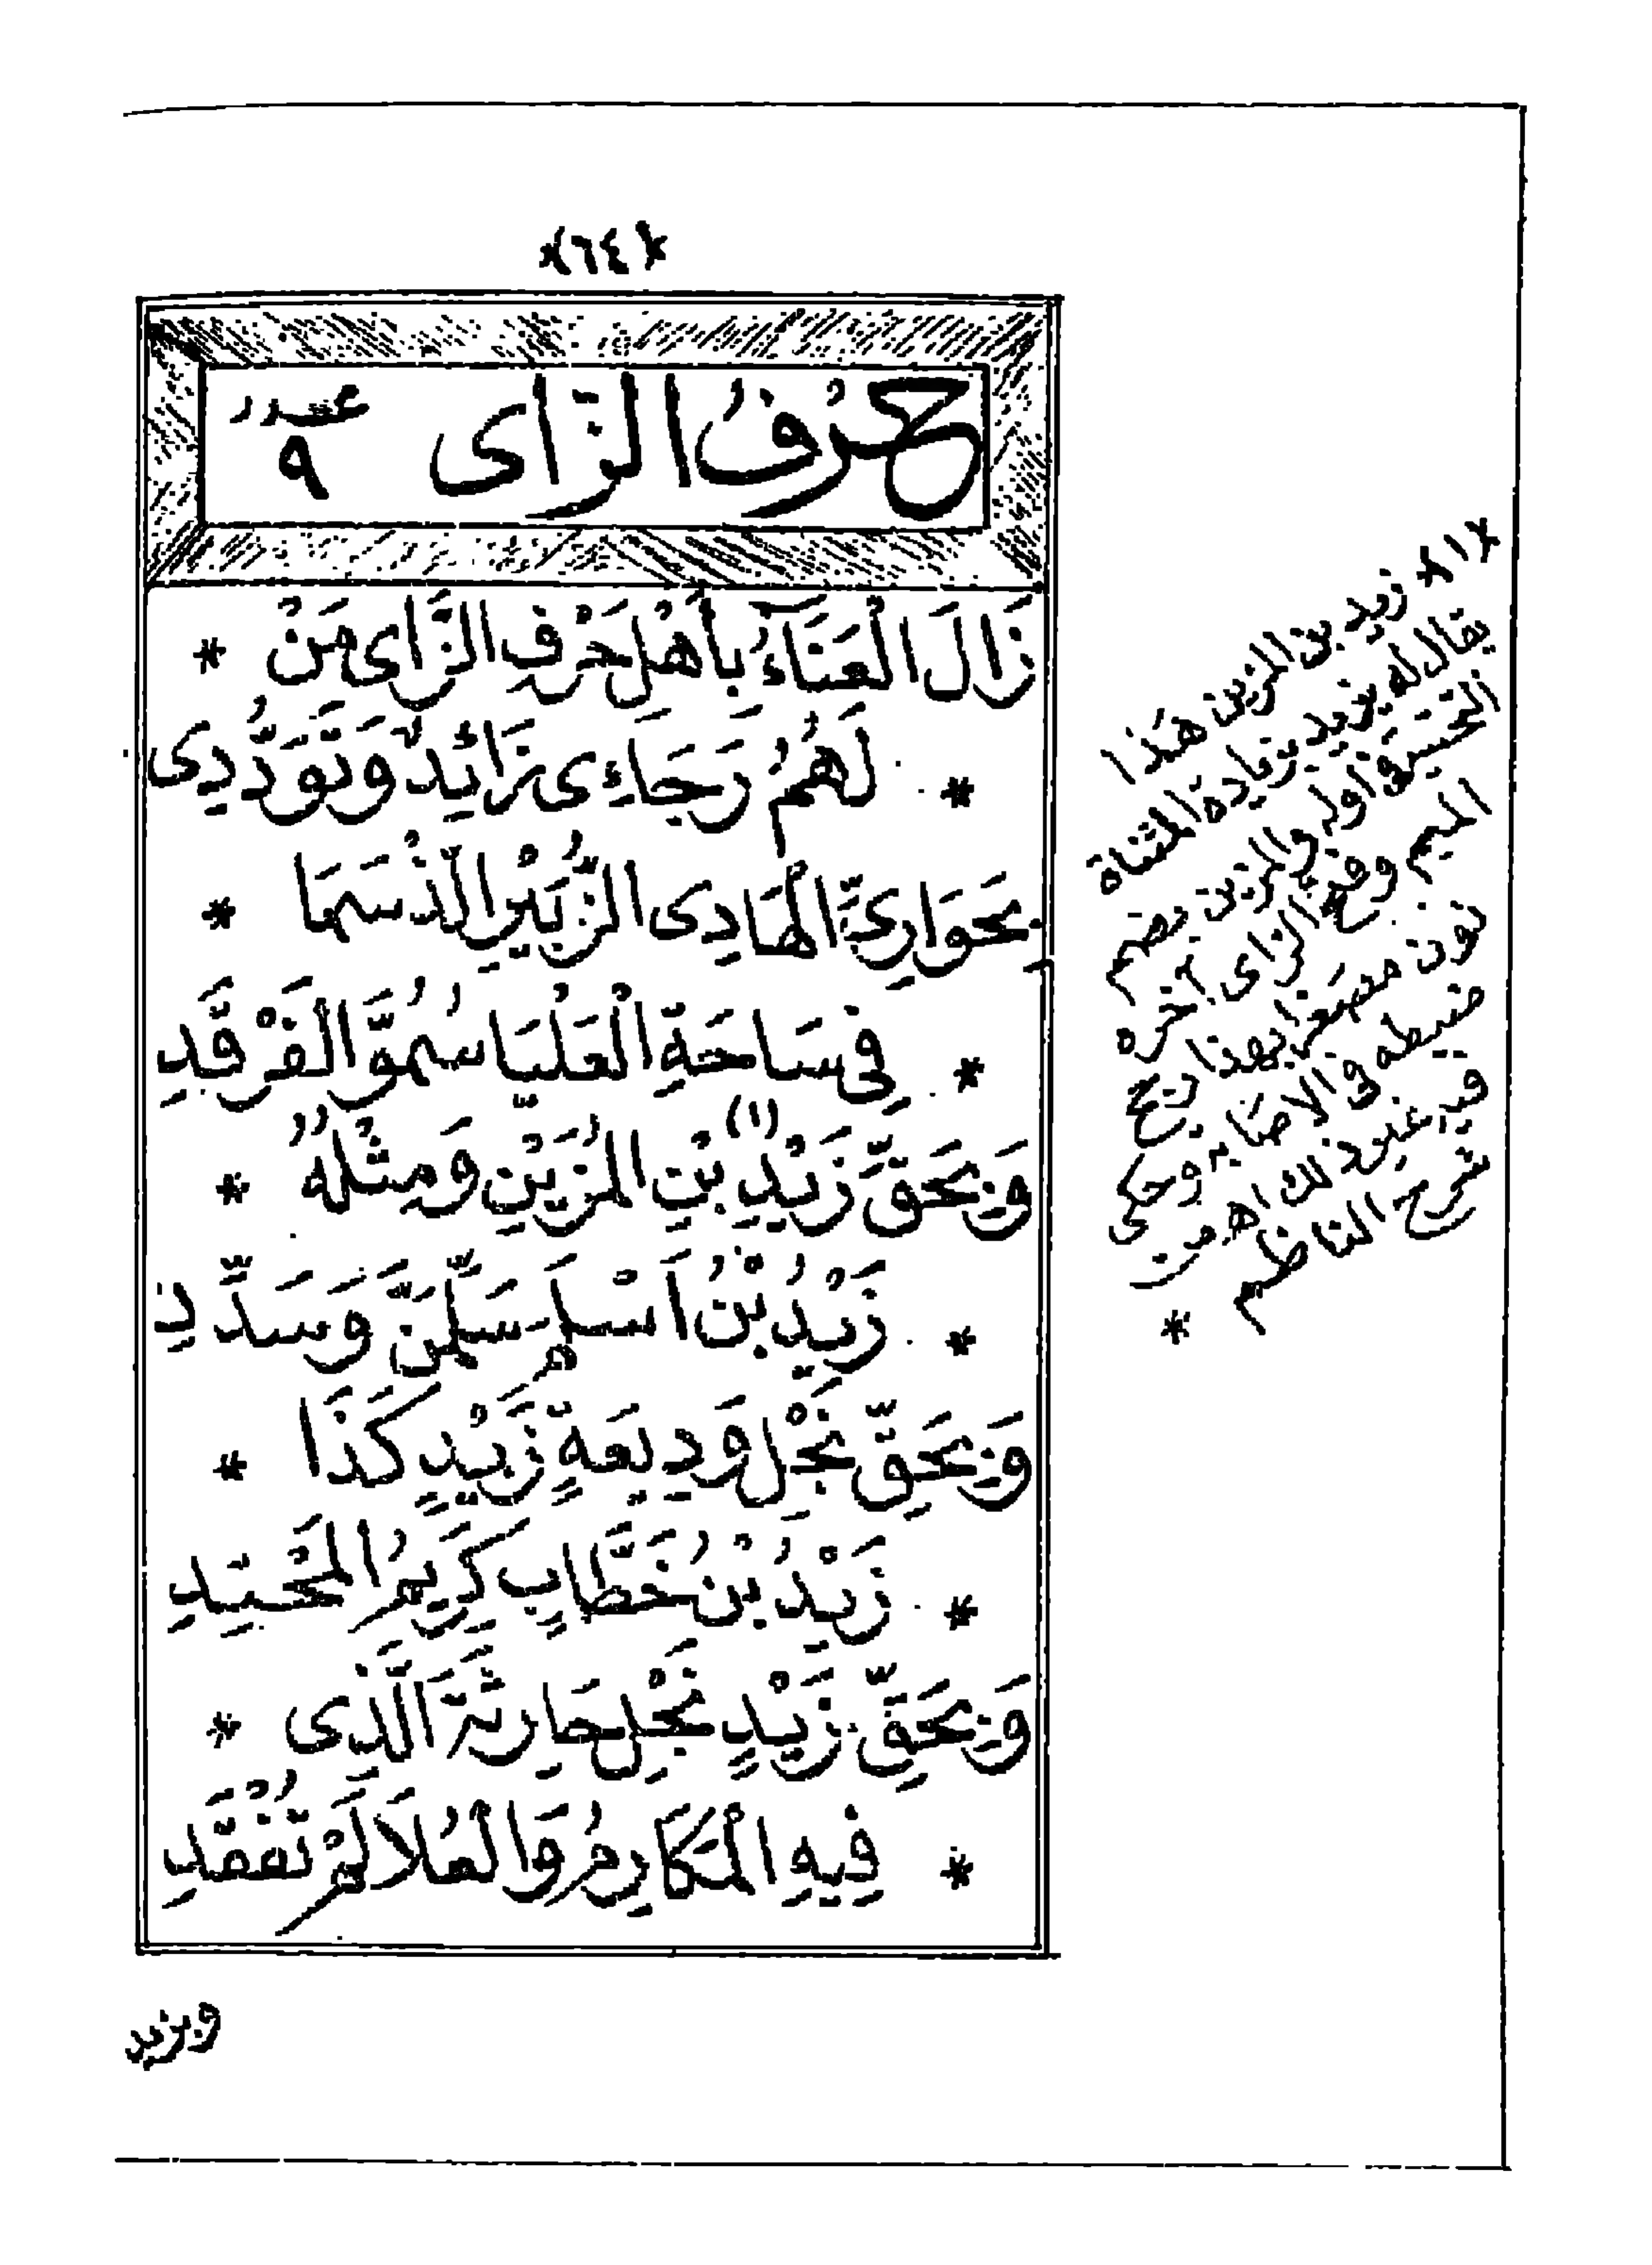 ﴿٦٤﴾
حَرْفُ الزَّاى عدد ٩
زَالَ الْعَنَآءُ بِأَهْلِ حَرْفِ الزَّاى مَنْ *
* لَهُمُ رَجَاءِى زَائِدٌ وَتَوَدُّدِى
بِحَوَارِىِّ الْهَادِى الزُّبَيْرِ الَّذْ سَمَا *
* فِى سَاحَةِ الْعَلْيَا سُمُوَّ الْفَرْقَدِ
وَبِحَقِّ زَيْدِ بْنِ (١) الْمُزَيْنِ وَمِثْلُهُ *
* زَيْدُ بْنُ اَسْلَمَ سَلِّمَنَّ وَسَدِّدِ
وَبِحَقِّ نَجْلِ وَدِيعَةٍ زَيْدٍ كَذَا *
* زَيْدُ بْنُ خَطَّابٍ كَرِيمُ الْمَحْتِدِ
وَبِحَقِّ زَيْدٍ نَجْلِ حَارِثَةَ الَّذِى *
* فِيهِ الْمَكَارِمُ وَالْعُلَا لَمْ تُفْقَدِ
وبزيد
﴿١﴾ زيد بن المزين هَذا
يقال له يزيد بزيادة المثناة
التحتية فى اوله والمزين بضم
الميم وفتح الزاى آخره
نون مصغرا بهذا رجح
ضبطه فى الاصابه وحكى
فيه غير ذلك اهـ من
شرح الناظم
*